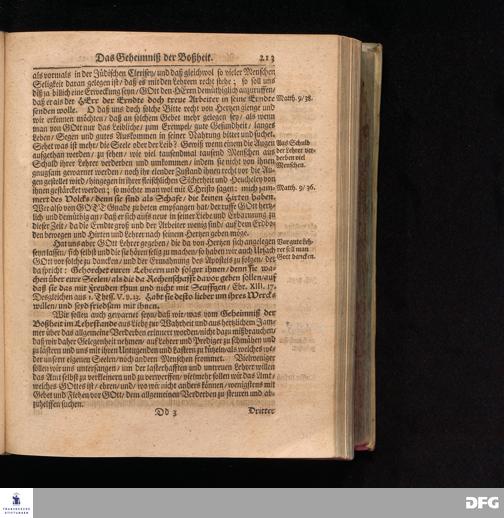 Das Geheimniß der Boßheit. 213
als vormals in der Jüdischen Clerisey/ und daß gleichwol so vieler Menschen
Seligkeit daran gelegen ist/ daß es mit den Lehrern recht stehe; so soll uns
diß ja billich eine Erweckung seyn/ GOtt den HErrn demüthiglich anzuruffen/
daß er als der HErr der Erndte doch treue Arbeiter in seine Erndte Matth. 9/38.
senden wolle. O daß uns doch solche Bitte recht von Hertzen gienge und
wir erkennen möchten/ daß an solchem Gebet mehr gelegen sey/ als wenn
man von GOtt nur das Leibliche/ zum Exempel/ gute Gesundheit/ langes
Leben/ Segen und gutes Auskommen in seiner Nahrung bittet und suchet.
Sehet was ist mehr/ die Seele oder der Leib? Gewiß wenn einem die Augen Aus Schuld
aufgethan werden/ zu sehen/ wie viel tausendmal tausend Menschen aus der Lehrer ver-
Schuld ihrer Lehrer verderben und umkommen/ indem sie nicht von ihnen derben viel
gnugsam gewarnet werden/ noch ihr elender Zustand ihnen recht vor die Au- Menschen.
gen gestellet wird/ hingegen in ihrer fleischlichen Sicherheit und Heucheley von
ihnen gestärcket werden; so möchte man wol mit Christo sagen: mich jam- Matth. 9/36.
mert des Volcks/ denn sie sind als Schafe/ die keinen Hirten haben.
Wer also von GOTT Gnade zu beten empfangen hat/ der ruffe GOtt hertz-
lich und demüthig an/ daß er sich aufs neue in seiner Liebe und Erbarmung zu
dieser Zeit/ da die Erndte groß und der Arbeiter wenig sind/ auf dem Erdbo-
den bewegen und Hirten und Lehrer nach seinem Hertzen geben möge.
Hat uns aber GOtt Lehrer gegeben/ die da von Hertzen sich angelegen Vor gute Leh-
seyn lassen/ sich selbst und die sie hören selig zu machen/ so haben wir auch Ursach rer soll man
GOtt vor solche zu danken/ und der Ermahnung des Apostels zu folgen/ der Gott dancken.
da spricht: Gehorchet euren Lehrern und folget ihnen/ denn sie wa-
chen über eure Seelen/ als die da Rechenschafft davor geben sollen/ auf
daß sie das mit Freuden thun und nicht mit Seufftzen/ Ebr. XIII, 17.
Desgleichen aus 1. Thess. V. v. 13. Habt sie desto lieber um ihres Wercks
willen/ und seyd friedsam mit ihnen.
Wir sollen auch gewarnet seyn/ daß wir/ was vom Geheimniß der
Boßheit im Lehrstande aus Liebe zur Wahrheit und aus hertzlichem Jam-
mer über das allgemeine Verderben erinnert worden/ nicht dazu mißbrauchen/
daß wir daher Gelegenheit nehmen/ auf Lehrer und Prediger zu schmähen und
zu lästern und uns mit ihren Untugenden und Lastern zu kützeln/ als welches we-
der unsern eigenen Seelen/ noch andern Menschen frommet. Vielweniger
sollen wir uns unterfangen/ um der lasterhafften und untreuen Lehrer willen
das Amt selbst zu verkleinern und zu verwerffen/ vielmehr sollen wir das Amt/
welches GOttes ist/ ehren/ und/ wo wir nicht anders können/ wenigstens mit
Gebet und Flehen vor GOtt/ dem allgemeinen Verderben zu steuren und ab-
zuhelffen suchen.
Dd 3 Dritter
FRANCKESCHE
STIFTUNGEN
DFG